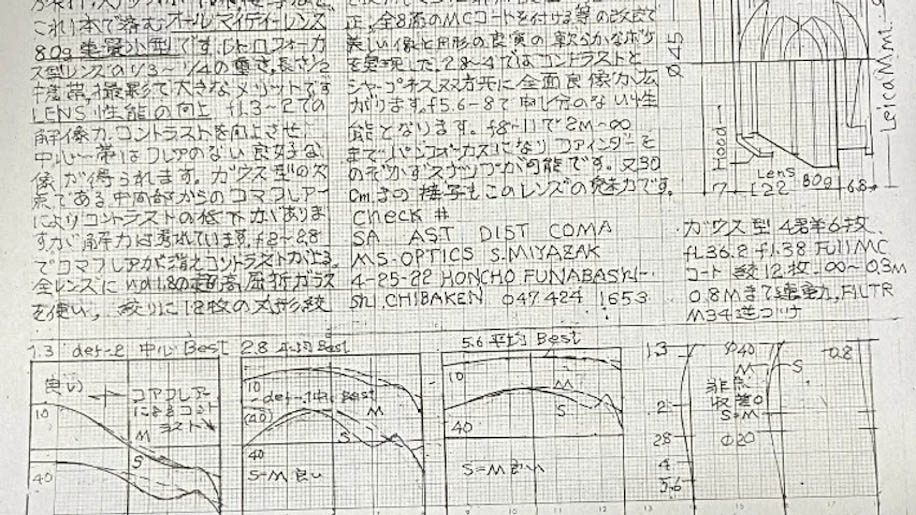 これ1本で済むオールマイティーレンズ
80g重量小型です。レトロフォーカ
ス型レンズの1/3~1/4の重さ,長さ1/2
携帯,撮影で大きなメリットです
LENS 性能の向上 f1.3~2での
解像力.コントラストを向上させ
中心一帯はフレアのない良好な
像が得られます。ガウス型の欠
点である中間部からのコマフレアー
によりコントラストの低下がありま
すが解像力は秀れています。f2~2.8
でコマフレアが消えコントラストが上る。
全レンズに nd1.8の超高屈折ガラス
を使い, 絞りに12枚の円形絞
正,全8面のMCコートを付ける等の改良で
美しい像と円形の良質の軟らかなボケ
を実現した。2.8~4ではコントラストと
シャープネス双方共に全面良像が広
がります。f5.6-8で申し分のない性
能となります。f8~11で2M~∞
までパンフォーカスになりファインダーを
のぞかずスナップが可能です。又30
Cmまでの接写もこのレンズの魅力です。
Check #
SA AST DIST COMA
MS-OPTICS S.MIYAZAK
4-25-22 HONCHO FUNABASKI-
Shi CHIBAKEN 047 424 1653
Q45
Leica M Mt.
Hood
Lens 80g
7 L22 68
ガウス型 4群6枚
fL36.2 f1.38 FUll MC
コート 絞12枚 ∞~0.3M
0.8Mまで連動, FILTR
M34逆コケ
1.3 def-2 中心Best 2.8 平均Best
良い
コアフレアー
によるコント
ラスト
10
M
S
40
10
def-中心Best
(40)
M
S
40
S=M 良い
5.6 平均 Best
10
M
S
40
S=M 良い
1.3
2
28
4
5.6
Φ40
M
S
非点
収差0
S=M
Φ20
-0.8